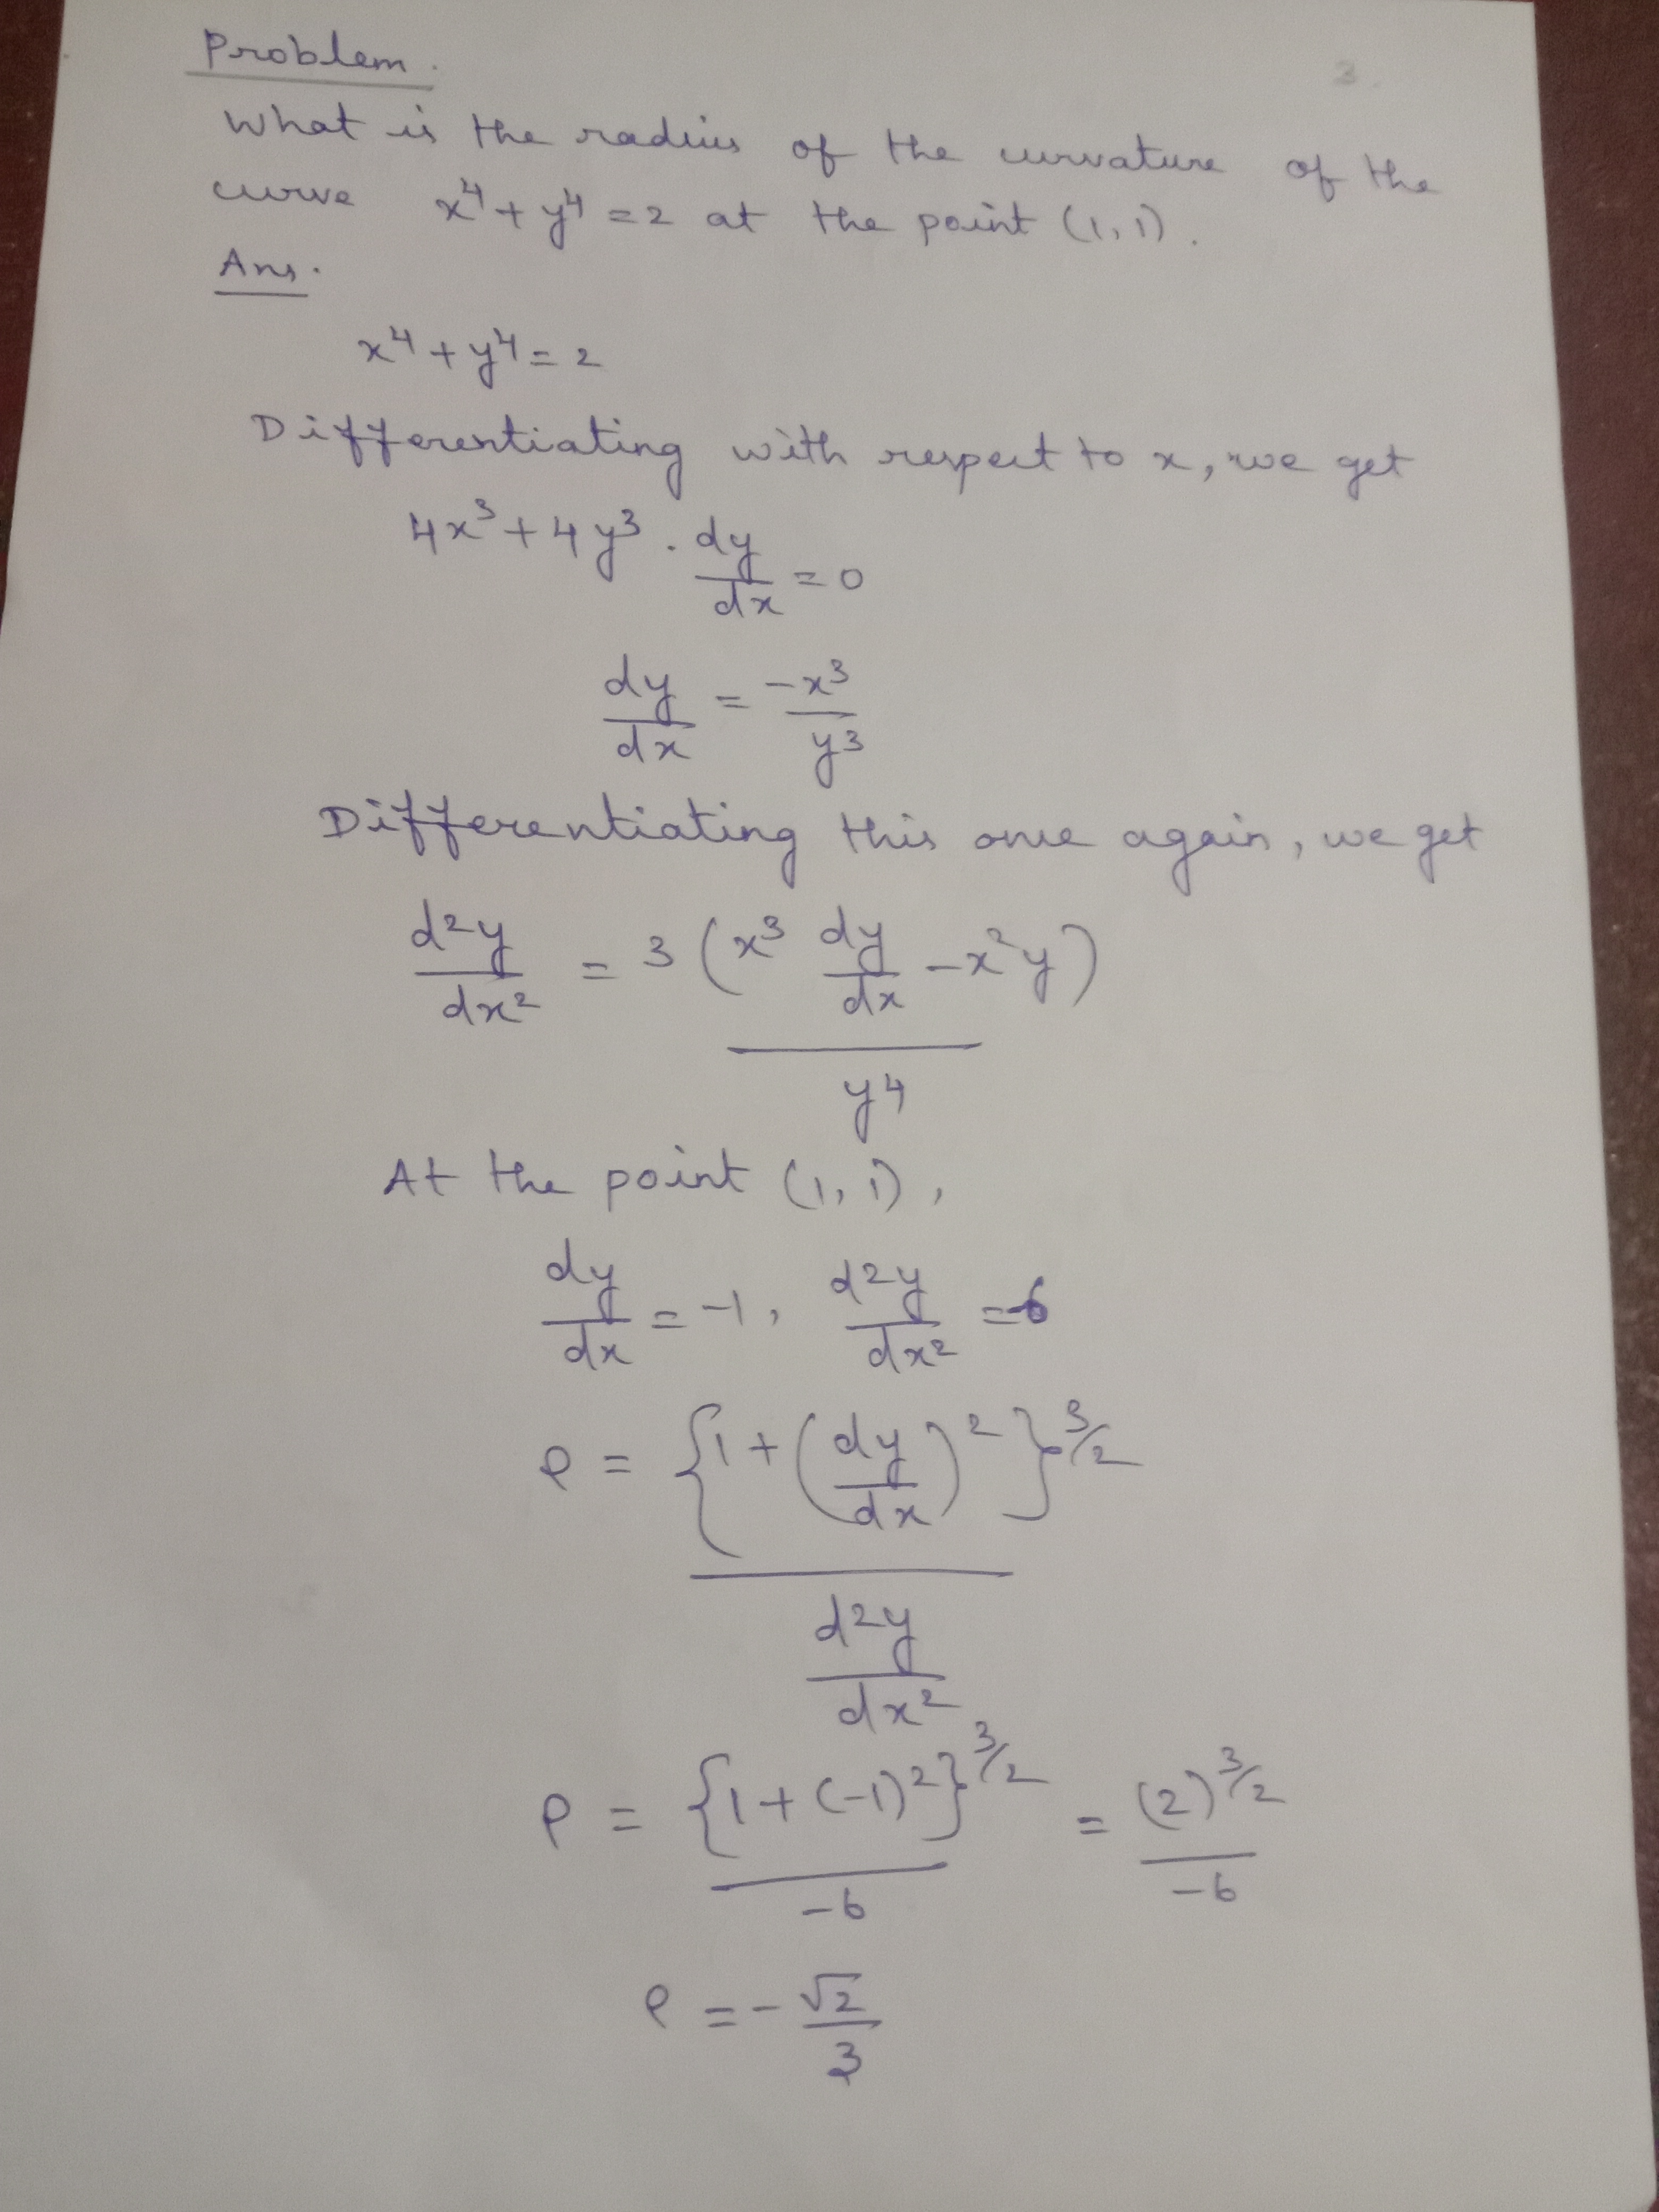 Problem.
3.
What is the radius of the curvature of the
curve x⁴ + y⁴ = 2 at the point (1, 1).
Ans.
x⁴ + y⁴ = 2
Differentiating with respect to x, we get
4x³ + 4y³ . dy/dx = 0
dy/dx = -x³/y³
Differentiating this once again, we get
d²y/dx² = 3 (x³ dy/dx - x²y) / y⁴
At the point (1, 1),
dy/dx = -1, d²y/dx² = -6
ρ = {1 + (dy/dx)²}^3/2 / d²y/dx²
ρ = {1 + (-1)²}^3/2 / -6 = (2)^3/2 / -6
ρ = - √2/3